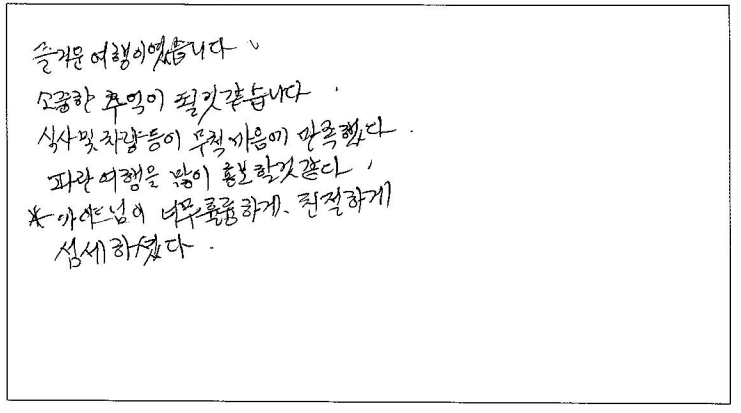 즐거운 여행이였습니다.
소중한 추억이 될것같습니다.
식사및 차량등이 무척 마음에 만족했다.
파란여행을 많이 홍보할것같다.
* 가이드님이 너무훌륭하게. 친절하게
섬세하셨다.